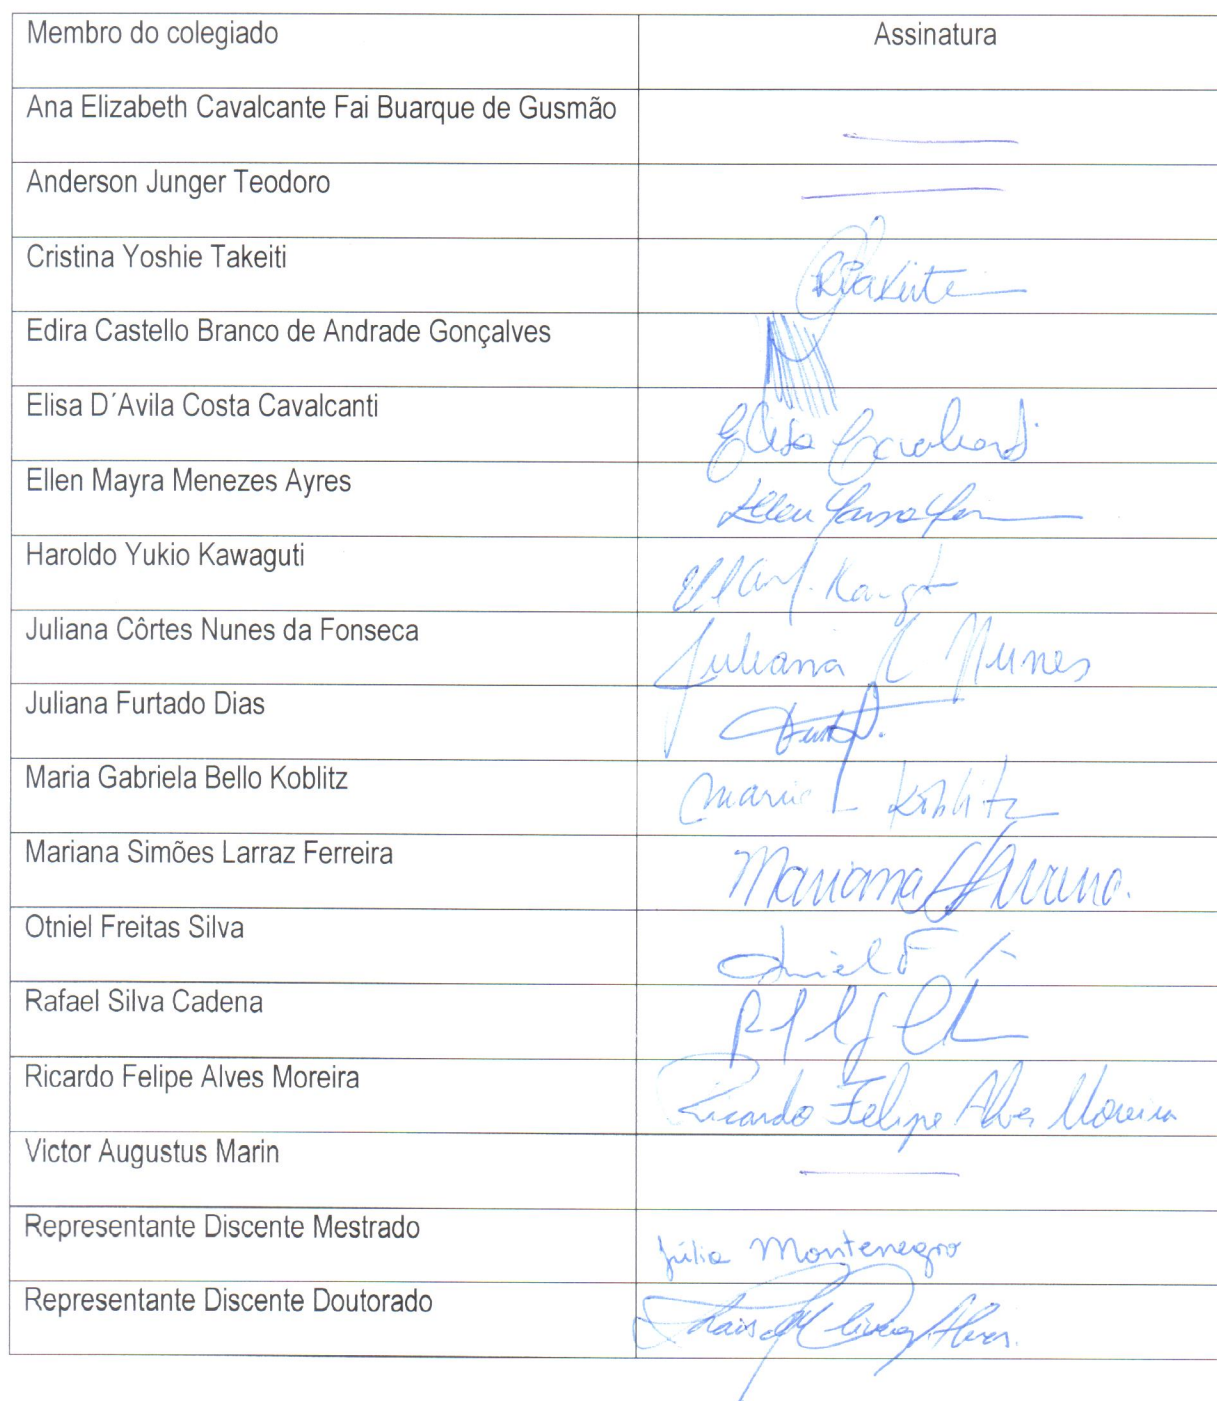 Membro do colegiado Assinatura
Ana Elizabeth Cavalcante Fai Buarque de Gusmão
Anderson Junger Teodoro
Cristina Yoshie Takeiti
Edira Castello Branco de Andrade Gonçalves
Elisa D´Avila Costa Cavalcanti Elisa
Ellen Mayra Menezes Ayres Ellen
Haroldo Yukio Kawaguti
Juliana Côrtes Nunes da Fonseca Juliana C Nunes
Juliana Furtado Dias
Maria Gabriela Bello Koblitz Maria Koblitz
Mariana Simões Larraz Ferreira Mariana
Otniel Freitas Silva Otniel F
Rafael Silva Cadena
Ricardo Felipe Alves Moreira Ricardo Felipe Alves Moreira
Victor Augustus Marin
Representante Discente Mestrado Júlia Montenegro
Representante Discente Doutorado